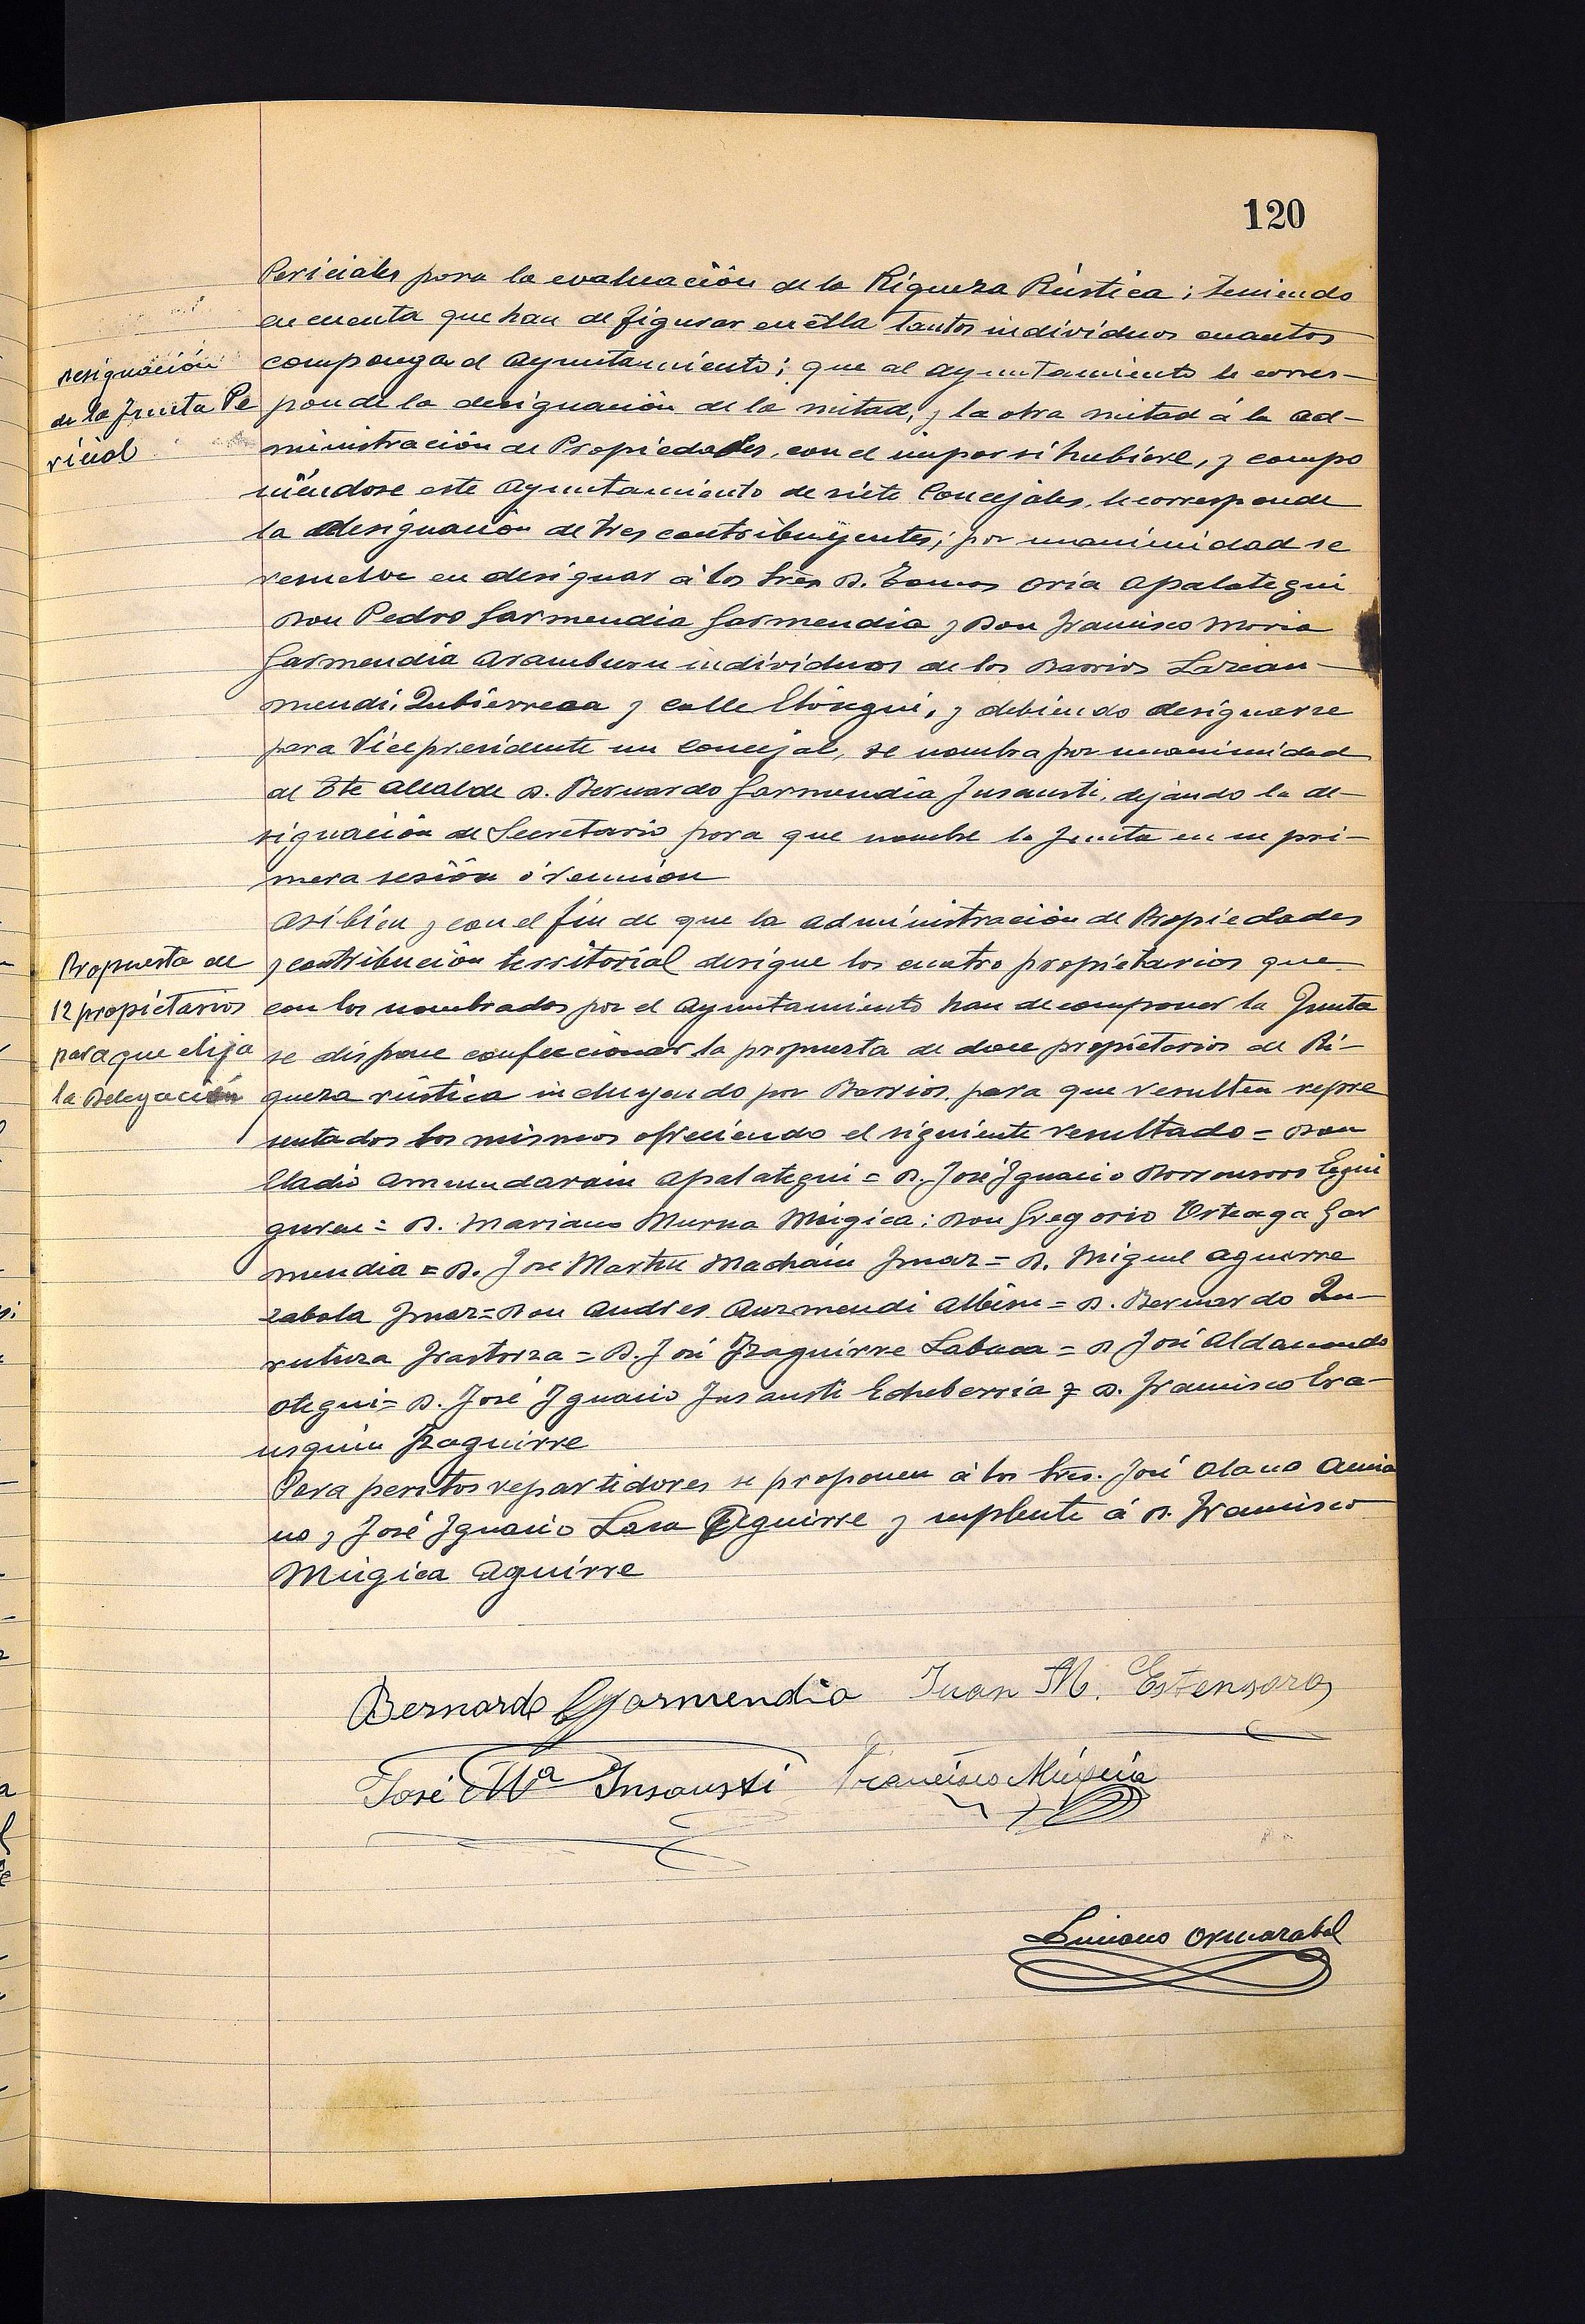 120
Periciales para la evaluación de la Riqueza Rústica; teniendo
en cuenta que han de figurar en ella tantos individuos cuantos
componga el Ayuntamiento; que al Ayuntamiento le corres-
ponde la designación de la mitad, y la otra mitad á la Ad-
ministración de Propiedades, con el impar si hubiere, y compo
niéndose este Ayuntamiento de siete Concejales, le corresponde
la designación de tres contribuyentes; por unanimidad se
resuelve en designar á los Sres D. Tomas Oria Apalategui
Don Pedro Garmendia Garmendia y Don Francisco Maria
Garmendia Aramburu individuos de los Barrios Lazcan-
mendi, Zubierreca y calle Elósegui, y debiendo designarse
para Vicepresidente un Concejal, se nombra por unanimidad
al Tte Alcalde D. Bernardo Garmendia Insausti, dejando la de-
signación de Secretario para que nombre la Junta en su pri-
mera sesión ó reunión
Designación
de la Junta Pe
ricial
Asi bien y con el fin de que la Administración de Propiedades
y contribución territorial designe los cuatro propietarios que
con los nombrados por el Ayuntamiento han de componer la Junta
se dispone confeccionar la propuesta de doce propietarios de Ri-
queza rústica incluyendo por Barrios para que resulten repre
sentados los mismos ofreciendo el siguiente resultado = Don
Eladio Amundarain Apalategui = D. José Ignacio Dorronsoro Egui
guren = D. Mariano Murua Múgica: Don Gregorio Urteaga Gar
mendia = D. José Martin Machain Imaz = D. Miguel Aguirre
zabala Imaz = Don Andres Auzmendi Albisu = D. Bernardo Zu-
rutuza Irastorza = D. José Izaguirre Labaca = D José Aldanondo
Otegui = D. José Ignacio Insausti Echeberria y D. Francisco Era-
usquin Izaguirre
Propuesta de
12 propietarios
para que elija
la Delegación
Para peritos repartidores se proponen á los Sres. José Olano Amia
no y José Ignacio Lasa Aguirre y suplente á D. Francisco
Múgica Aguirre
Bernardo Garmendia Juan M. Estensoro
José Mª Insausti Francisco Múgica
Luciano Ormazabal